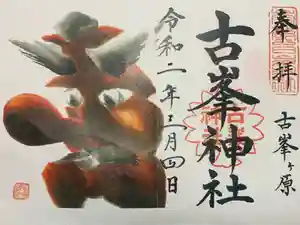 奉拝
古峯ヶ原
古峯神社
令和二年二月四日